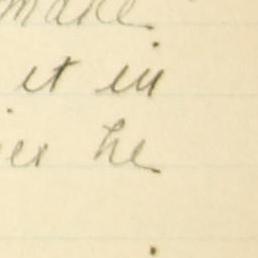 make
it in
he